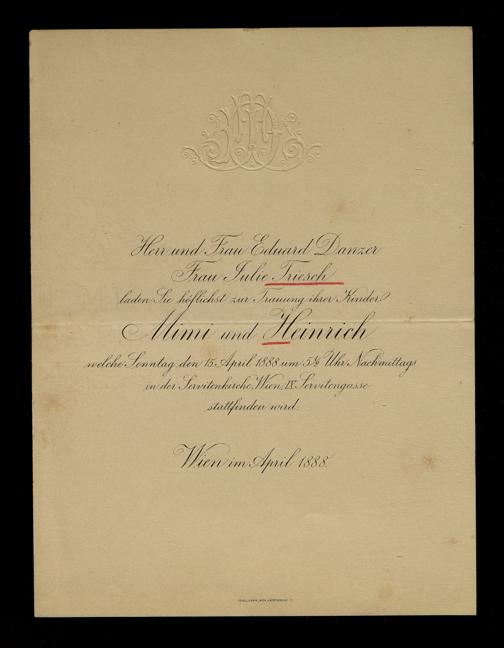 Herr und Frau Eduard Danzer
Frau Julie Triesch
laden Sie höflichst zur Trauung ihrer Kinder
Mimi und Heinrich
welche Sonntag den 15. April 1888 um 5½ Uhr Nachmittags
in der Servitenkirche, Wien, IX. Servitengasse
stattfinden wird.
Wien im April 1888.